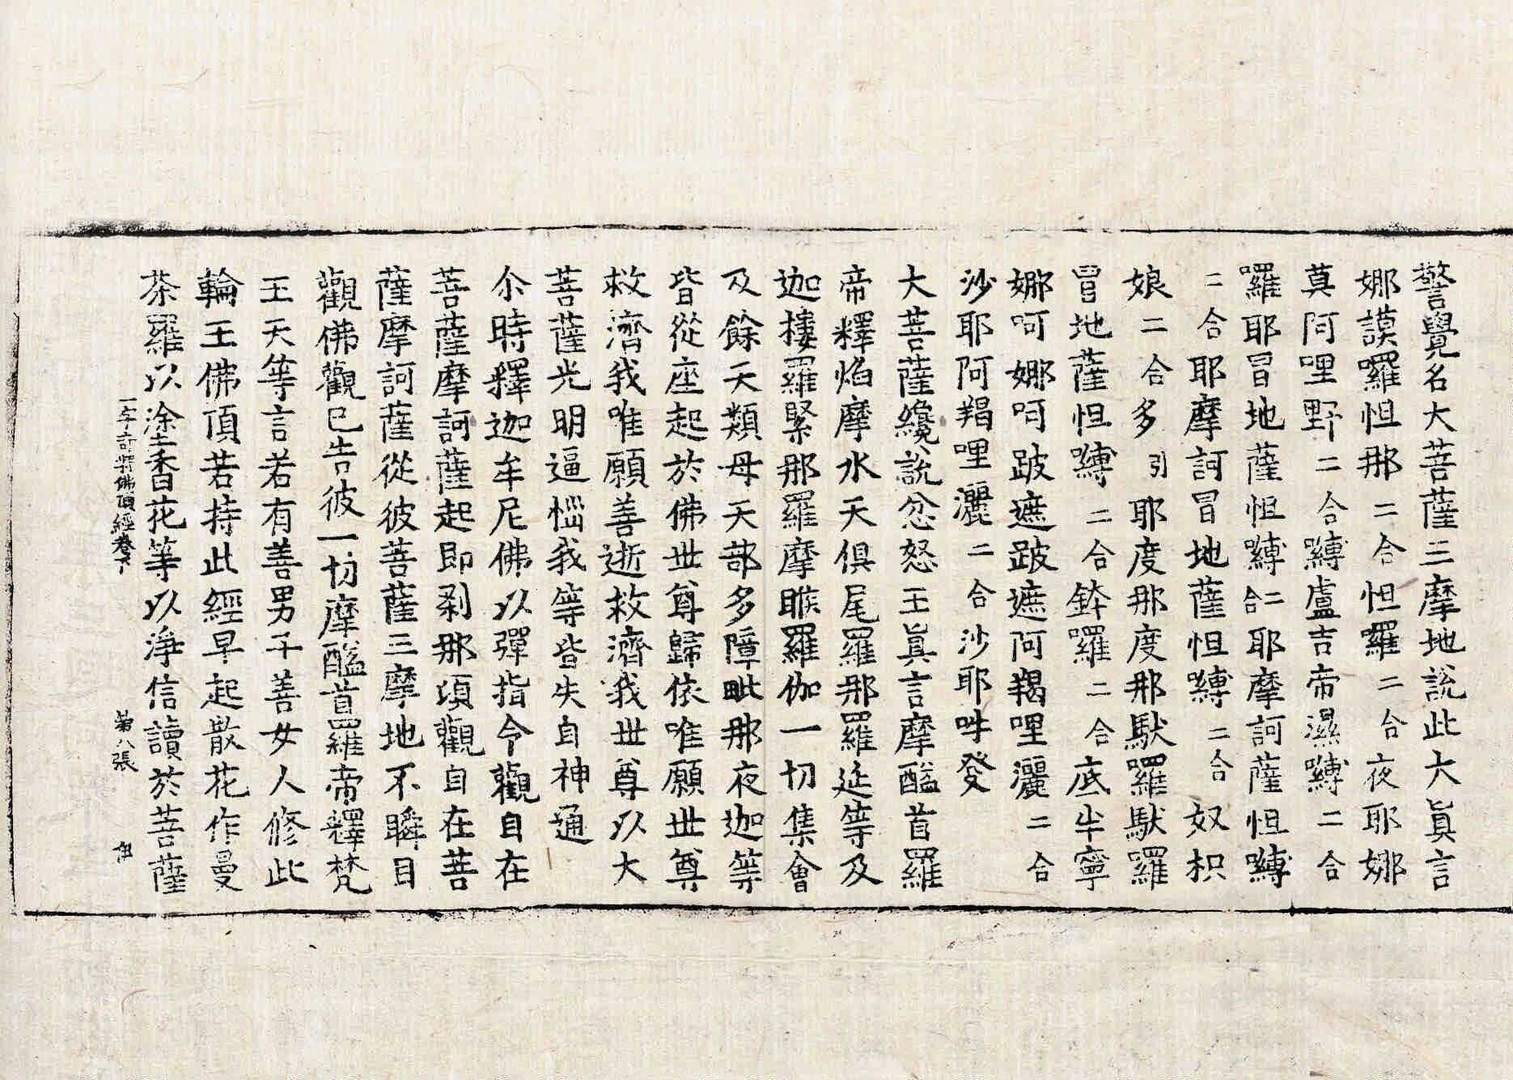 警覺名大菩薩三摩地說此大眞言
娜謨囉怛那二合怛羅二合夜耶娜
莫阿哩野二合嚩盧吉帝濕嚩二合
羅耶冒地薩怛嚩二合耶摩訶薩怛嚩
二合耶摩訶冒地薩怛嚩二合奴枳
娘二合多引耶度那度那馱囉馱囉
冒地薩怛嚩二合鉢囉二合底半寧
娜呵娜呵跛遮跛遮阿羯哩灑二合
沙耶阿羯哩灑二合沙耶吽發
大菩薩纔說忿怒王眞言摩醯首羅
帝釋焰摩水天俱尾羅那羅延等及
迦樓羅緊那羅摩睺羅伽一切集會
及餘天類母天部多障毗那夜迦等
皆從座起於佛世尊歸依唯願世尊
救濟我唯願善逝救濟我世尊以大
菩薩光明逼惱我等皆失自神通
尒時釋迦牟尼佛以彈指令觀自在
菩薩摩訶薩起即刹那頃觀自在菩
薩摩訶薩從彼菩薩三摩地不瞬目
觀佛觀已告彼一切摩醯首羅帝釋梵
王天等言若有善男子善女人修此
輪王佛頂若持此經早起散花作曼
茶羅以塗香花等以淨信讀於菩薩
一字奇特佛頂經卷下 第八張 伊